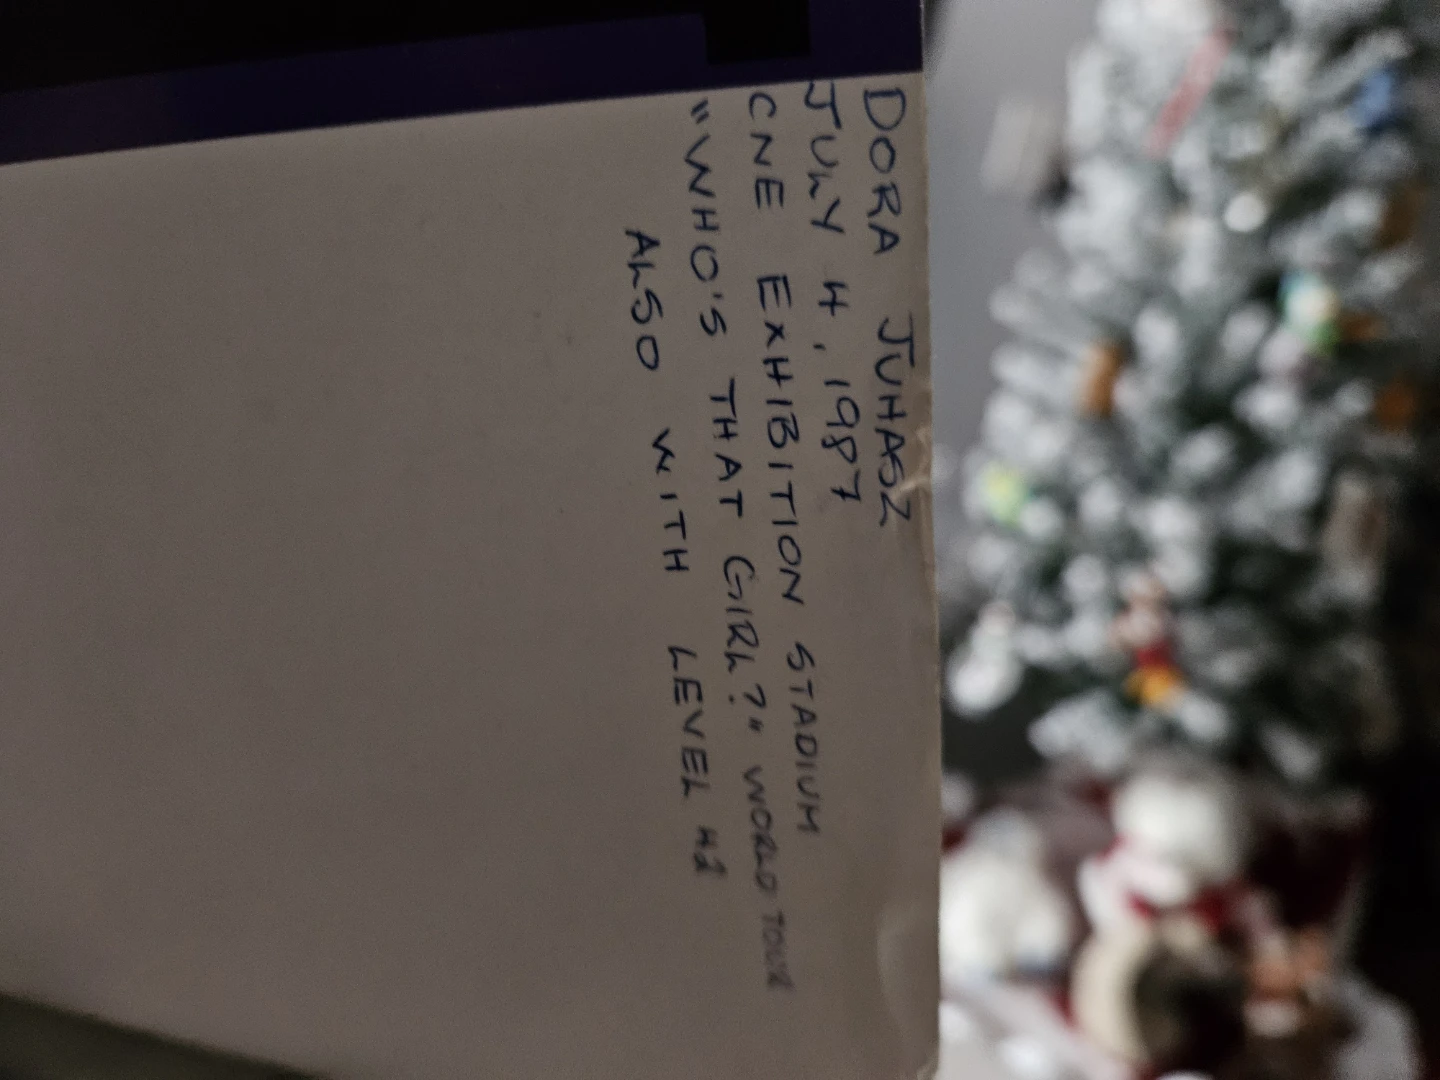 DORA JUHASZ
JULY 4, 1987
CNE EXHIBITION STADIUM
"WHO'S THAT GIRL?" WORLD TOUR
ALSO WITH LEVEL 42